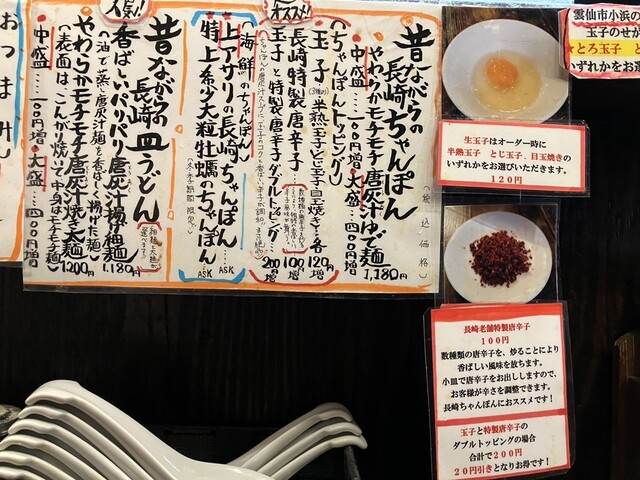 昔ながらの
長崎ちゃんぽん
（税込価格）
やわらかモチモチ唐灰汁ゆで麺 1,180円
・中盛…一〇〇円増・大盛…四〇〇円増
〈ちゃんぽんトッピング〉
オススメ!
玉子（3種の）半熟玉子とじ玉子目玉焼き各 120円
長崎特製唐辛子… 100円増
玉子と特製唐辛子ダブルトッピング… 200円増
〈海鮮のちゃんぽん〉
上アサリの長崎ちゃんぽん… ASK
特上希少大粒牡蠣のちゃんぽん ASK
人気!!
昔ながらの
長崎皿うどん
香ばしいパリパリ唐灰汁揚げ細麺 1,180円
（油で蒸す唐灰汁麺を香ばしく揚げた麺）
やわらかモチモチ唐灰汁焼き太麺 1200円
（表面はこんがり焼いて中身はモチモチ麺）
・中盛…一〇〇円増・大盛…四〇〇円増
おつまみ
生玉子はオーダー時に
半熟玉子 とじ玉子、目玉焼きの
いずれかをお選びいただきます。
120円
長崎老舗特製唐辛子
100円
数種類の唐辛子を、炒ることにより
香ばしい風味を放ちます。
小皿で唐辛子をお出ししますので、
お客様が辛さを調整できます。
長崎ちゃんぽんにおススメです!
玉子と特製唐辛子の
ダブルトッピングの場合
合計で200円
20円引きとなりお得です!
雲仙市小浜の
玉子のせが
★とろ玉子 と
いずれかをお選